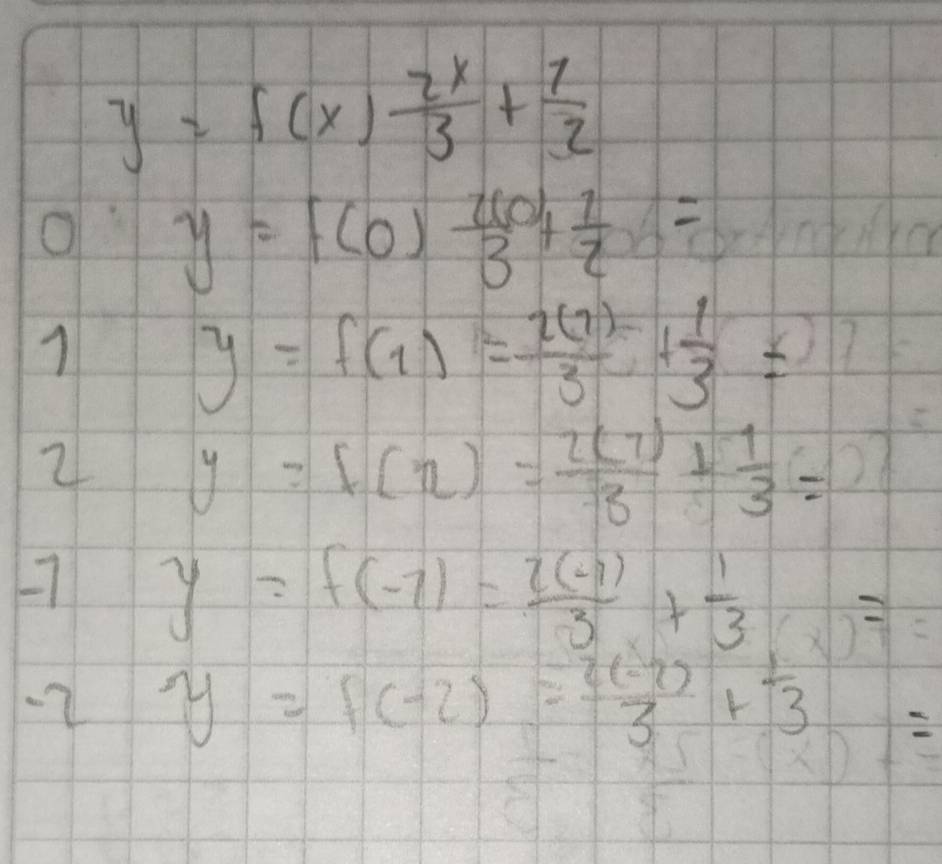 y = f(x) 2x/3 + 1/2
0 y = f(0) 2(0)/3 + 1/2 =
1 y = f(1) = 2(1)/3 + 1/3 =
2 y = f(2) = 2(1)/3 + 1/3 =
-1 y = f(-1) = 2(-1)/3 + 1/3 =
-2 y = f(-2) = 2(-2)/3 + 1/3 =